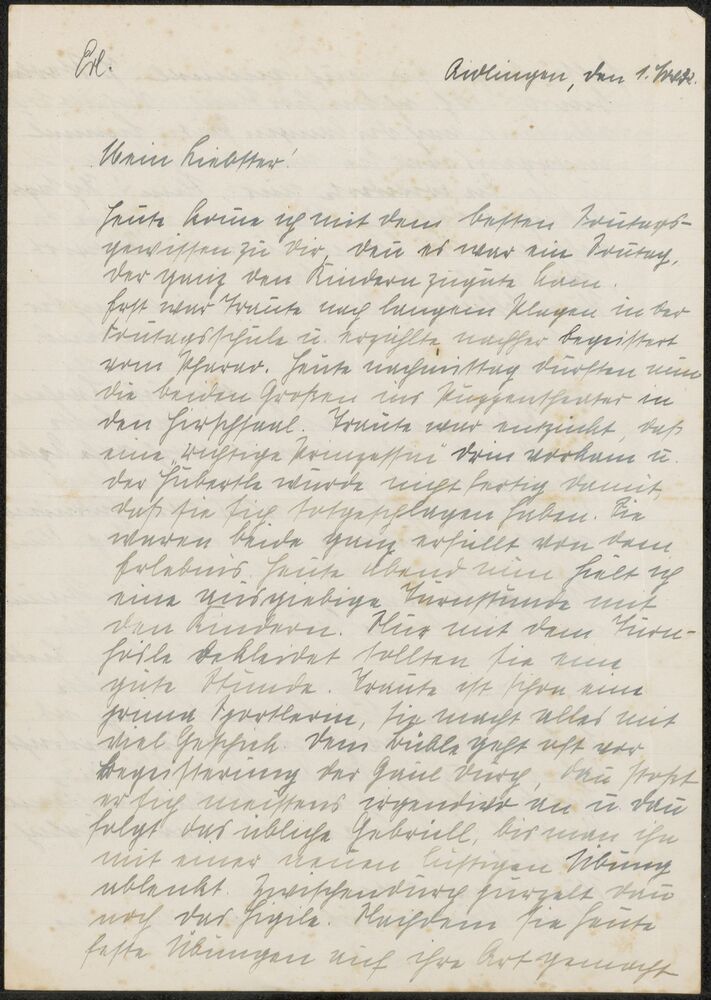 Erl.
Aidlingen, den 1.
Mein Liebster!
Heute komme ich mit dem besten Sontags-
gewissen zu Dir, den es war ein Sontag,
der ganz den Kindern zugute kam.
Erst war Traute nach langem Plagen in der
Sontagsschule u. erzählte nachher begeistert
vom Pfarrer. Heute nachmittag durften nun
die beiden Großen ins Puppentheater in
den Hirschsaal. Traute war entzückt, daß
eine "richtige Prinzessin" drin vorkam u.
der Hubertle wurde nicht fertig damit,
daß sie sich totgeschlagen haben. Sie
waren beide ganz erfüllt von dem
Erlebnis. Heute abend nun hielt ich
eine ausgiebige Turnstunde mit
den Kindern. Nur mit dem Turn-
hösle bekleidet tollten sie eine
gute Stunde. Traute ist schon eine
prima Sportlerin, sie macht alles mit
viel Geschick. Dem Buble geht oft vor
Begeisterung der Gaul durch, dan stoßt
er sich meistens irgendwo an u. dan
folgt das übliche Gebrüll, bis man ihn
mit einer neuen lustigen Übung
ablenkt. Zwischendurch purzelt dan
noch das Gigile. Nachdem sie heute
feste Übungen auf ihre Art gemacht